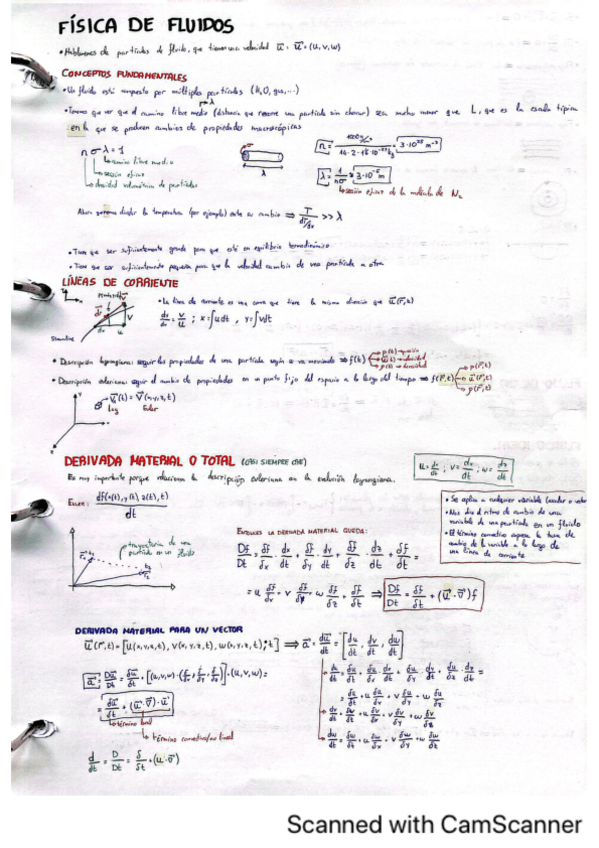 FÍSICA DE FLUIDOS
• Hablamos de partículas de fluido, que tienen una velocidad u⃗ : u⃗ = (u, v, w)
CONCEPTOS FUNDAMENTALES
• Un fluido está compuesto por múltiples partículas
• Tenemos que ver que el camino libre medio (distancia que recorre una partícula sin chocar) sea mucho menor que L, que es la escala típica
en la que se producen cambios de propiedades macroscópicas
n σ λ = 1
camino libre medio
sección eficaz
densidad volumétrica de partículas
λ = 1/nσ
sección eficaz de la molécula de N₂
la temperatura (por ejemplo) entre su cambio ⟹ T / dT/dx >> λ
• Tiene que ser suficientemente grande para que esté en equilibrio termodinámico
• Tiene que ser suficientemente pequeña para que la velocidad cambie de una partícula a otra
LÍNEAS DE CORRIENTE
• La línea de corriente es una curva que tiene la misma dirección que u⃗(r⃗,t)
dx/dv = v/u ; x = ∫u dt , y = ∫v dt
Streamline
• Descripción lagrangiana: seguir las propiedades de una partícula según se va moviendo ⟹ f(t)
• Descripción euleriana: seguir el cambio de propiedades en un punto fijo del espacio a lo largo del tiempo ⟹ f(r⃗,t)
p(r⃗,t)
u⃗(r⃗,t)
ρ(r⃗,t)
u⃗(t) = V⃗(x,y,z,t)
Lag Euler
DERIVADA MATERIAL O TOTAL (CASI SIEMPRE CAE)
u = dx/dt ; v = dv/dt ; w = dz/dt
Es muy importante porque relaciona la descripción euleriana con la evolución lagrangiana.
Euler: df(x(t), y(t), z(t), t) / dt
• Se aplica a cualquier variable
• Nos dice el ritmo de cambio de una
variable de una partícula en un fluido
• El término convectivo expresa la tasa de
cambio de la variable a lo largo de
una línea de corriente
trayectoria de una
partícula en un fluido
ENTONCES LA DERIVADA MATERIAL QUEDA:
Df/Dt = δf/δx · dx/dt + δf/δy · dy/dt + δf/δz · dz/dt + δf/δt =
= u δf/δx + v δf/δy + w δf/δz + δf/δt ⟹ Df/Dt = δf/δt + (u⃗·∇⃗)f
DERIVADA MATERIAL PARA UN VECTOR
u⃗(r⃗,t) = [u(x,y,z,t), v(x,y,z,t), w(x,y,z,t); t] ⟹ a⃗ = du⃗/dt = [du/dt, dv/dt, dw/dt]
a⃗ = Du⃗/Dt = δu⃗/δt + [(u,v,w)·(δ/δx, δ/δy, δ/δz)]·(u,v,w) =
= δu⃗/δt + (u⃗·∇⃗)·u⃗
término local
término convectivo/no lineal
du/dt = δu/δt + δu/δx dx/dt + δu/δy dy/dt + δu/δz dz/dt =
= δu/δt + u δu/δx + v δu/δy + w δu/δz
dv/dt = δv/δt + u δv/δx + v δv/δy + w δv/δz
dw/dt = δw/δt + u δw/δx + v δw/δy + w δw/δz
d/dt = D/Dt = δ/δt + (u⃗·∇⃗)
Scanned with CamScanner